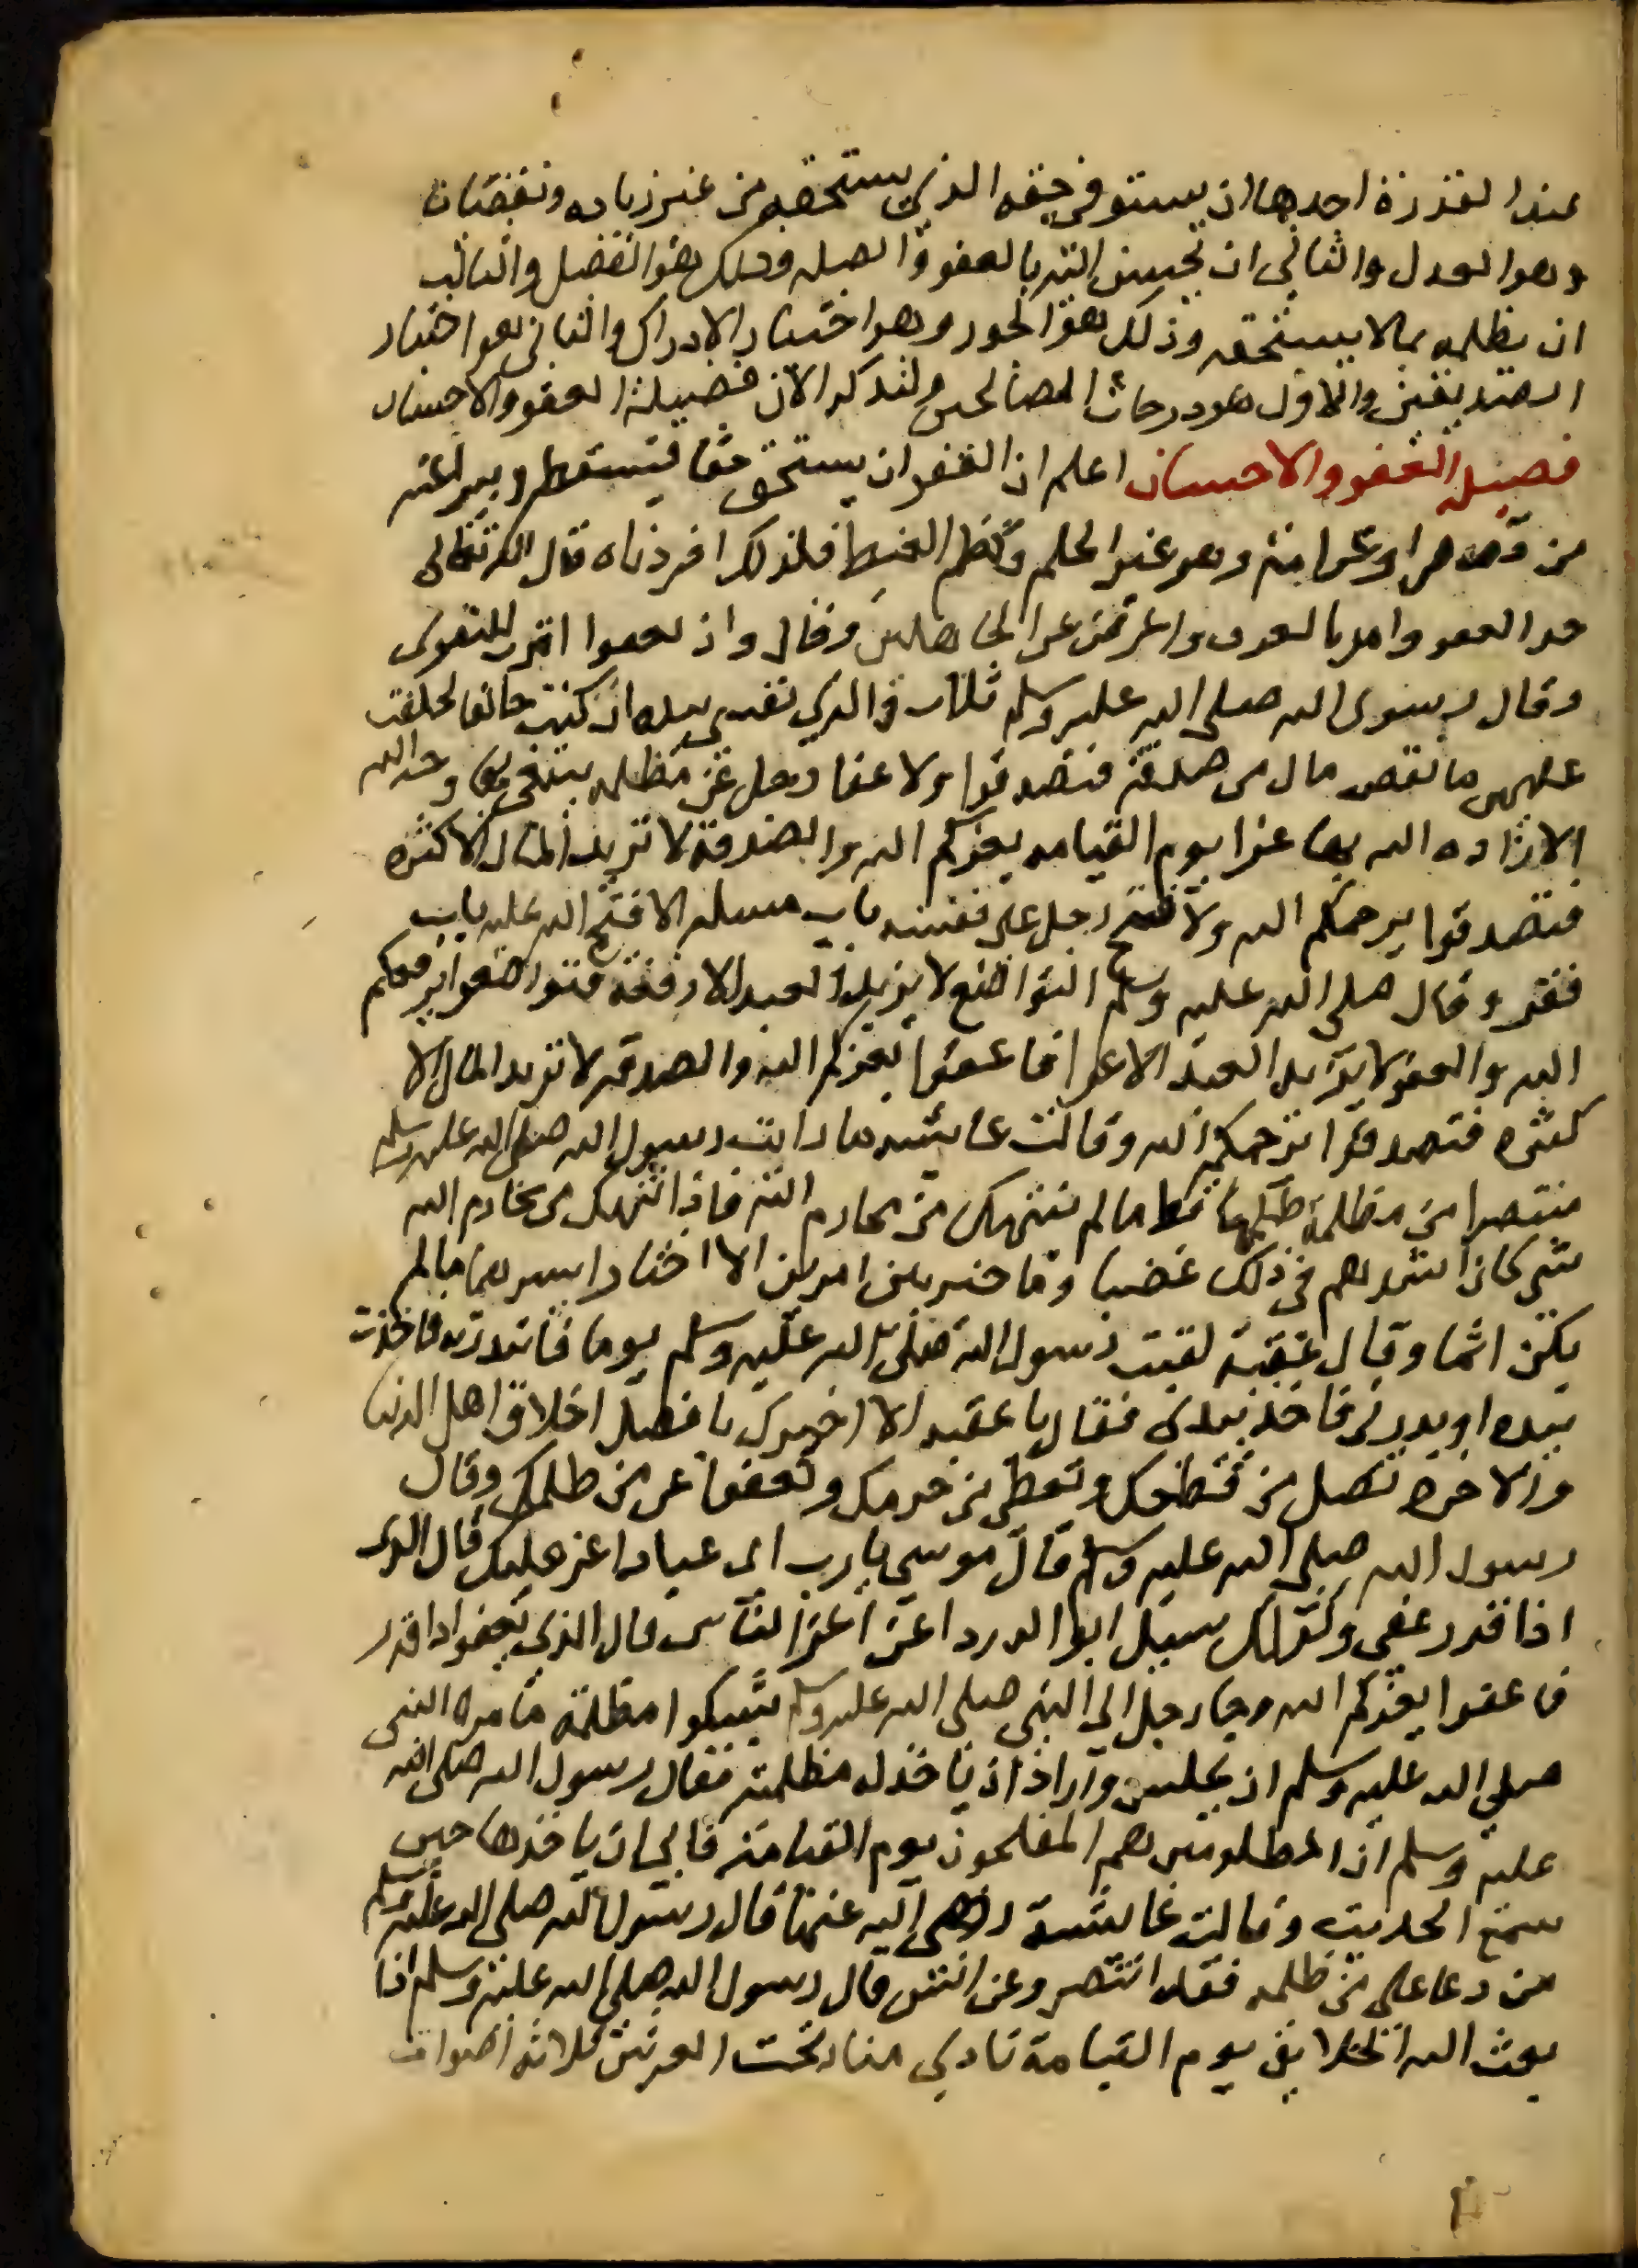 عند القدرة احدها ان يستوفي حقه الذي يستحقه من غير زياده ونقصان
وهو العدل والثاني ان يحسن اليه بالعفو والصله وذلك هو الفضل والثالث
ان يظلمه بما لا يستحقه وذلك هو الجور وهو اختيار الارذال والثاني هو اختيار
الصديقين والاول هو درجات الصالحين ولنذكر الان فضيلة العفو والاحسان
فضيله العفو والاحسان اعلم ان العفو ان يستحق حقا فيسقطه ويبرا عنه
من قصاص او غرامة وهو غير الحلم وكظم الغيظ فلذلك افردناه قال الله تعالى
خذ العفو وامر بالعرف واعرض عن الجاهلين وقال وان تعفوا اقرب للتقوى
وقال رسول الله صلى الله عليه وسلم ثلاث والذي نفسي بيده ان كنت حالفا لحلفت
عليهن ما نقص مال من صدقة فتصدقوا ولا عفا رجل عن مظلمه يبتغي بها وجه الله
الا زاده الله بها عزا يوم القيامه يعزكم الله والصدقة لا تزيد المال الا كثره
فتصدقوا يرحمكم الله ولا فتح رجل على نفسه باب مسله الا فتح الله عليه باب
فقر وقال صلى الله عليه وسلم التواضع لا يزيد العبد الا رفعة فتواضعوا يرفعكم
الله والعفو لا يزيد العبد الا عزا فاعفوا يعزكم الله والصدقه لا تزيد المال الا
كثره فتصدقوا يرحمكم الله وقالت عائشه ما رايت رسول الله صلى الله عليه وسلم
منتصرا من مظلمة ظلمها قط ما لم تنتهك من محارم الله فاذا انتهك من محارم الله
شي كان اشدهم في ذلك غضبا وما خير بين امرين الا اختار ايسرهما ما لم
يكن اثما وقال عقبة لقيت رسول الله صلى الله عليه وسلم يوما فابتدرته فاخذت
بيده او بدرني فاخذ بيدي فقال يا عقبه الا اخبرك بافضل اخلاق اهل الدنيا
والاخرة تصل من قطعك وتعطي من حرمك وتعفو عن من ظلمك وقال
رسول الله صلى الله عليه وسلم قال موسى يا رب اي عبادك اعز عليك قال الذي
اذا قدر عفى وكذلك سيل ابو الدردا عن اعز الناس قال الذي يعفو اذا قدر
فاعفوا يعزكم الله وجا رجل الى النبي صلى الله عليه وسلم يشكوا مظلمة فامره النبي
صلي الله عليه وسلم ان يجلس واراد ان ياخذ له مظلمته فقال رسول الله صلى الله
عليه وسلم ان المظلومين هم المفلحون يوم القيامة فابى ان ياخذها حين
سمع الحديث وقالت عائشة رضي الله عنها قال رسول الله صلى الله عليه وسلم
من دعا على من ظلمه فقد انتصر وعن انس قال رسول الله صلى الله عليه وسلم اذا
بعث الله الخلايق يوم القيامة نادي مناد تحت العرش ثلاثه اصوات